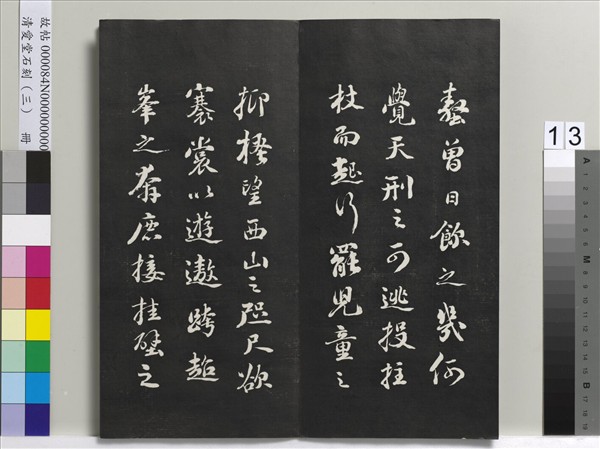 螯曾日飲之幾何
覺天刑之可逃投拄
杖而起行罷兒童之
抑搔望西山之咫尺欲
褰裳以遊遨跨超
峯之奔鹿接挂壁之
故帖 000084N000000000
清愛堂石刻(三) 冊
13